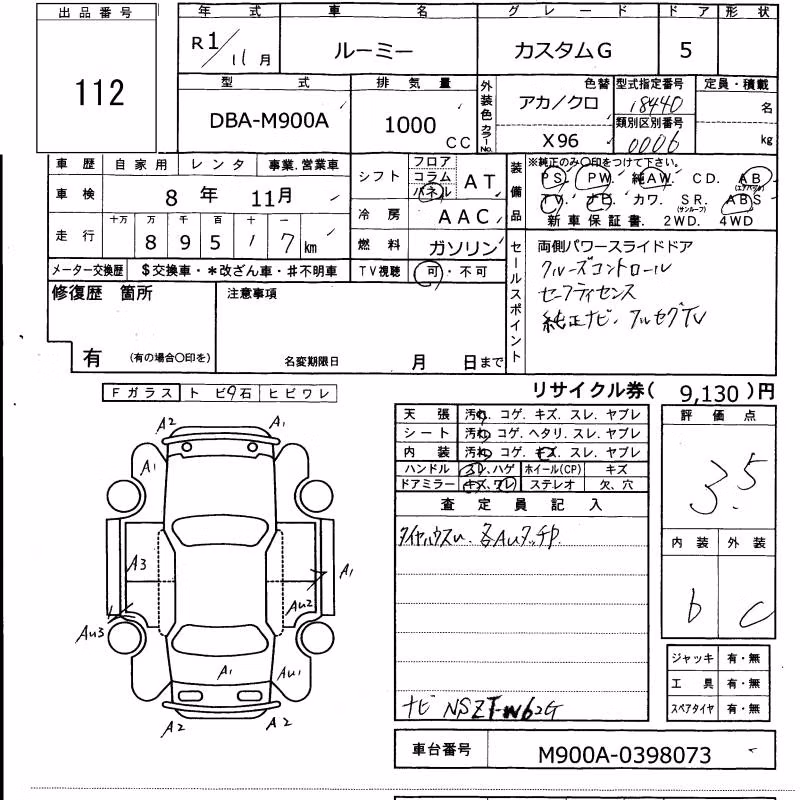 出品番号 年式 車名 グレード ドア 形状
112 R1/11月 ルーミー カスタムG 5
型式 排気量 外装色 色替 型式指定番号 定員・積載
DBA-M900A 1000CC アカ/クロ 18440 名
カラーNo. X96 類別区別番号 0006 kg
車歴 自家用 レンタ 事業.営業車 シフト フロア コラム パネル AT
車検 8年 11月 冷房 AAC
走行 十万 万 千 百 十 一 8 9 5 1 7 km 燃料 ガソリン
メーター交換歴 $交換車・*改ざん車・#不明車 TV視聴 可・不可
装備品 ※純正のみ〇印をつけて下さい。
PS. PW. 純AW. CD. AB(エアバッグ)
TV. ナビ. カワ. SR.(サンルーフ) ABS
新車保証書. 2WD. 4WD
セールスポイント 両側パワースライドドア
クルーズコントロール
セーフティセンス
純正ナビ、フルセグTV
修復歴 箇所 注意事項
有 (有の場合〇印を) 名変期限日 月 日まで
リサイクル券( 9,130 )円
Fガラス トビ石 ヒビワレ
天張 汚れ. コゲ. キズ. スレ. ヤブレ
シート 汚れ. コゲ. ヘタリ. スレ. ヤブレ
内装 汚れ. コゲ. キズ. スレ. ヤブレ
ハンドル スレ.ハゲ ホイール(CP) キズ
ドアミラー キズ.ワレ ステレオ 欠、穴
評価点
3.5
内装 外装
b C
査定員記入
各AUタッチP
ナビ NSZT-W62G
A2 A1
A1
A3 A1
AU2
AU3
A1 AU1
A2 A2
ジャッキ 有・無
工具 有・無
スペアタイヤ 有・無
車台番号 M900A-0398073